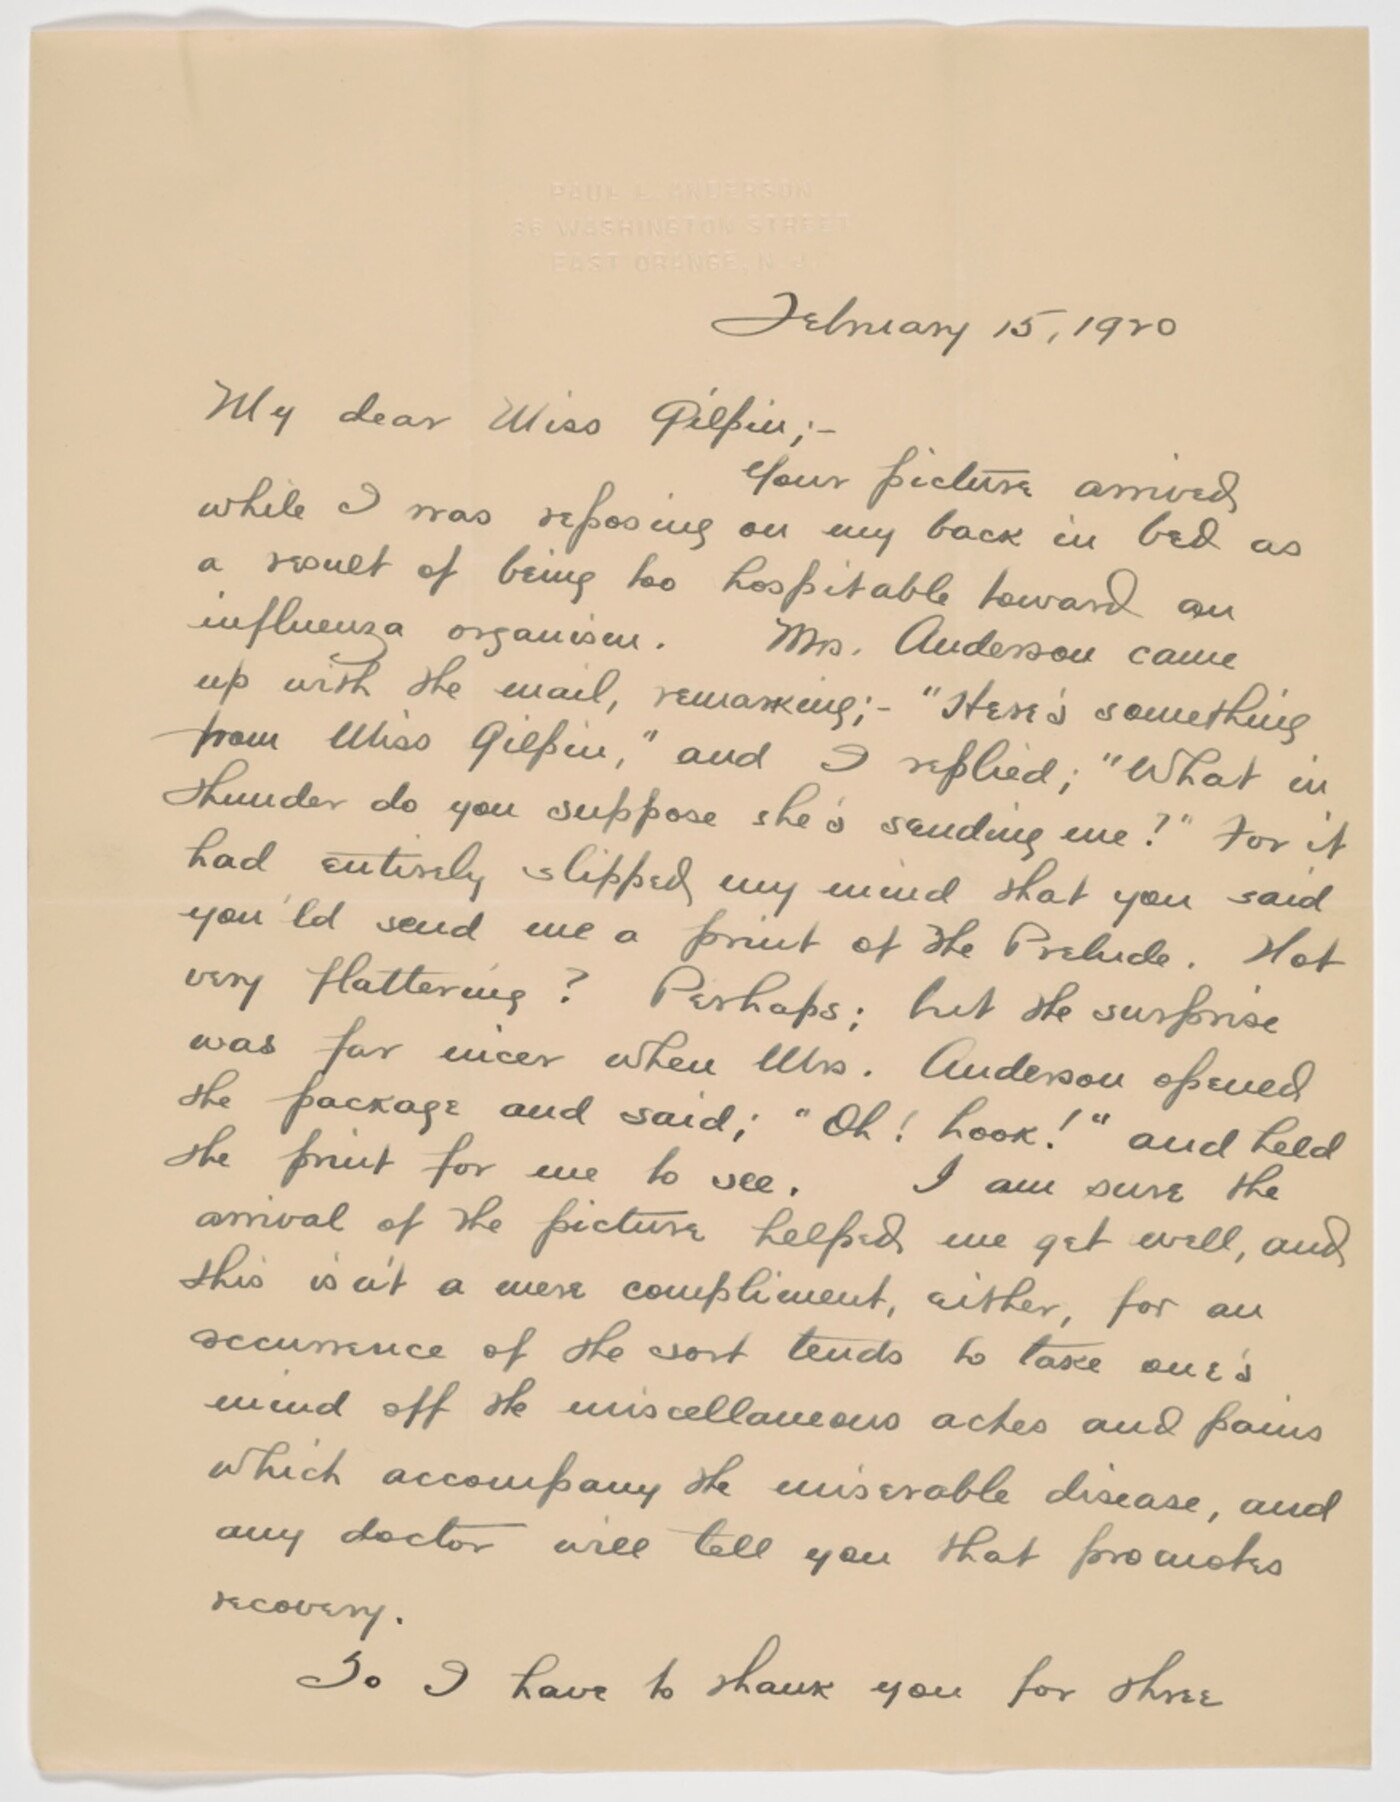 PAUL L. ANDERSON
36 WASHINGTON STREET
EAST ORANGE, N. J.
February 15, 1920
My dear Miss Gilpin;-
Your picture arrived
while I was reposing on my back in bed as
a result of being too hospitable toward an
influenza organism. Mrs. Anderson came
up with the mail, remarking;- "Here's something
from Miss Gilpin," and I replied; "What in
thunder do you suppose she's sending me?" For it
had entirely slipped my mind that you said
you'ld send me a print of the Prelude. Not
very flattering? Perhaps; but the surprise
was far nicer when Mrs. Anderson opened
the package and said; "Oh! Look!" and held
the print for me to see. I am sure the
arrival of the picture helped me get well, and
this isn't a mere compliment, either, for an
occurrence of the sort tends to take one's
mind off the miscellaneous aches and pains
which accompany the miserable disease, and
any doctor will tell you that promotes
recovery.
So I have to thank you for three